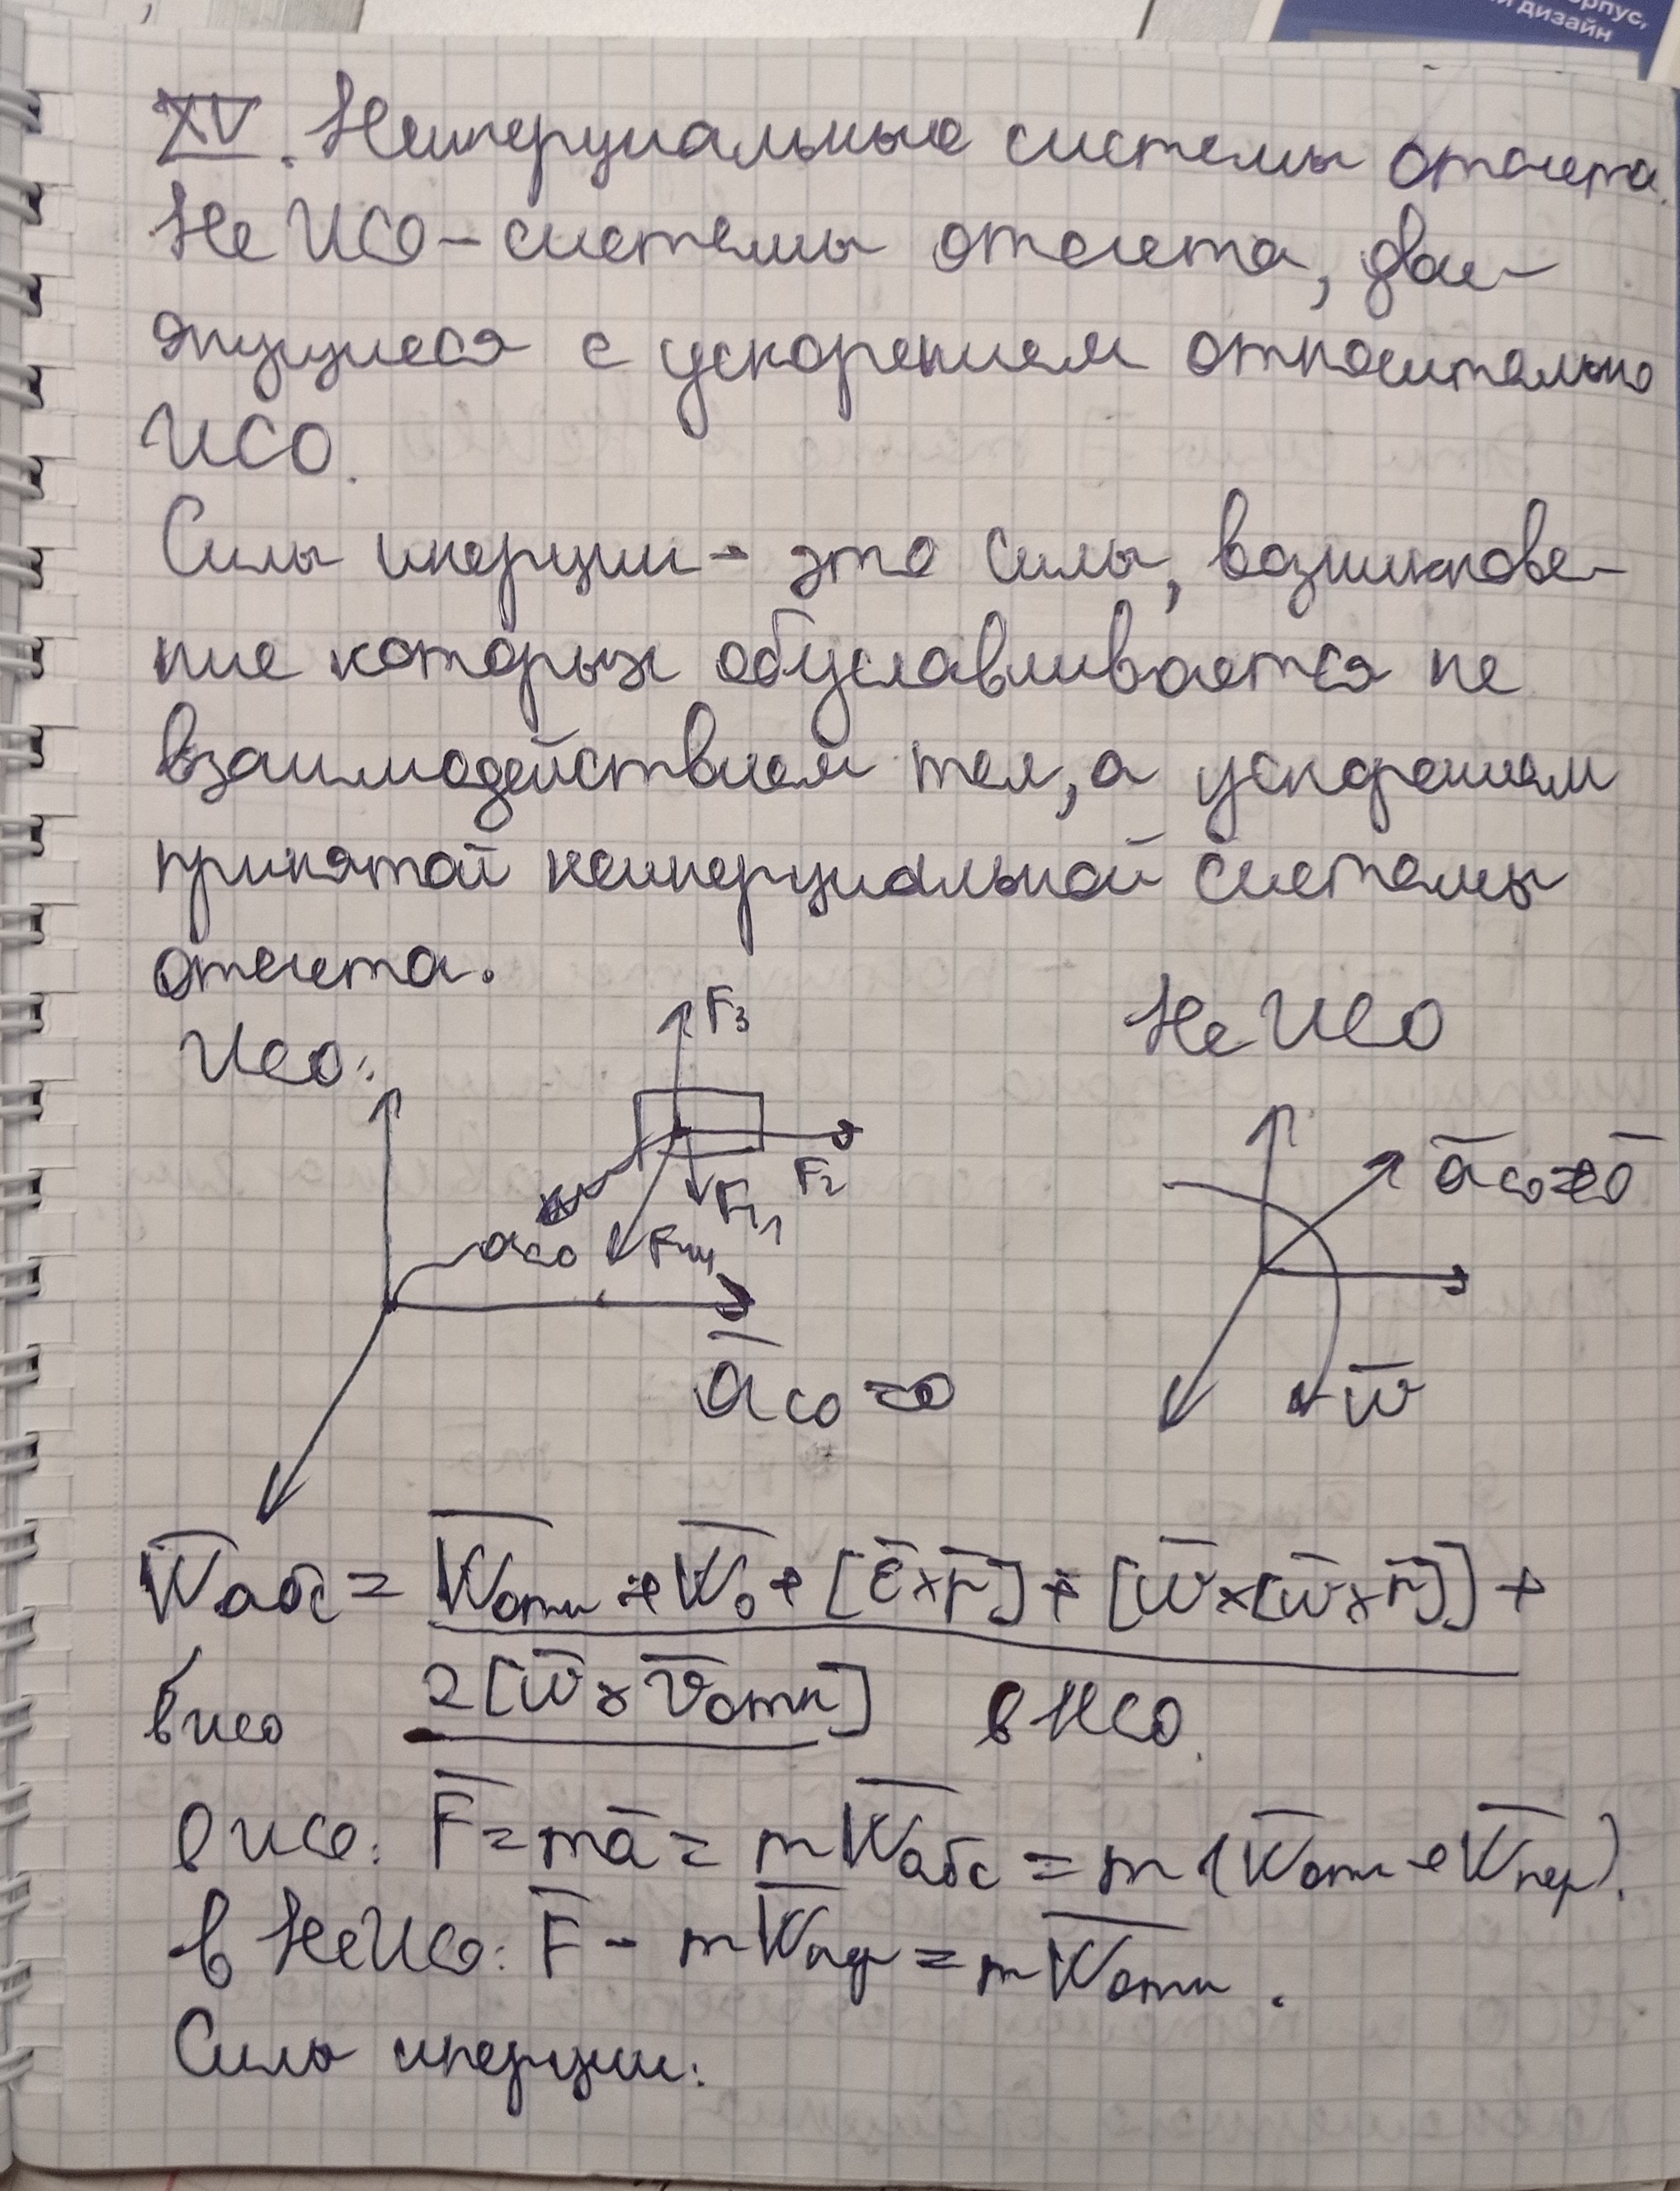 орпус,
и дизайн
XV. Неинерциальные системы отсчета.
Не ИСО – системы отсчета, дви-
жущиеся с ускорением относительно
ИСО.
Силы инерции – это силы, возникнове-
ние которых обуславливается не
взаимодействием тел, а ускорением
принятой неинерциальной системы
отсчета.
ИСО: F₃ Не ИСО
F₂ a̅со≠0̅
F₁
aсо
a̅со=0 w̅
W̅абс = W̅отн + W̅₀ + [ε̅×r̅] + [w̅×[w̅×r̅]] +
2[w̅×v̅отн] в НСО.
в исо
в исо: F̅ = ma̅ = mW̅абс = m(W̅отн + W̅пер).
в НеИСО: F̅ – mW̅пер = mW̅отн.
Силы инерции: